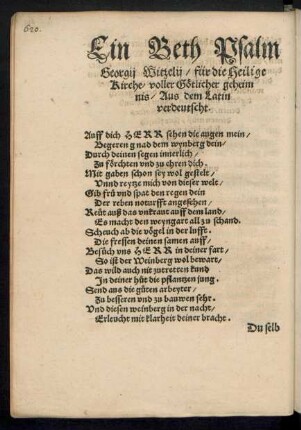 620.
Ein Beth Psalm
Georgij Witzelij / für die Heilige
Kirche / voller Götlicher geheim
nis / Aus dem Latin
verdeutscht.
Auff dich HERR sehen die augen mein /
Begeren gnad dem wynberg dein /
Durch deinen segen innerlich /
Zu förchten vnd zu ehren dich.
Mit gaben schon sey wol gestelt /
Vnnd reytze mich von dieser welt /
Gib frü vnd spat den regen dein
Der reben noturfft angesehen /
Reüt auß das vnkraut auff dem land /
Es macht den weyngart all zu schand.
Scheuch ab die vögel in der lufft
Die fressen deinen samen auff /
Besüch vns HERR in deiner fart /
So ist der Weinberg wol bewart /
Das wild auch nit zutretten kund
In deiner hüt die pflantzen jung.
Send aus die güten arbeyter /
Zu besseren vnd zu bauwen sehr.
Vnd diesen weinberg in der nacht /
Erleucht mit klarheit deiner bracht.
Du selb